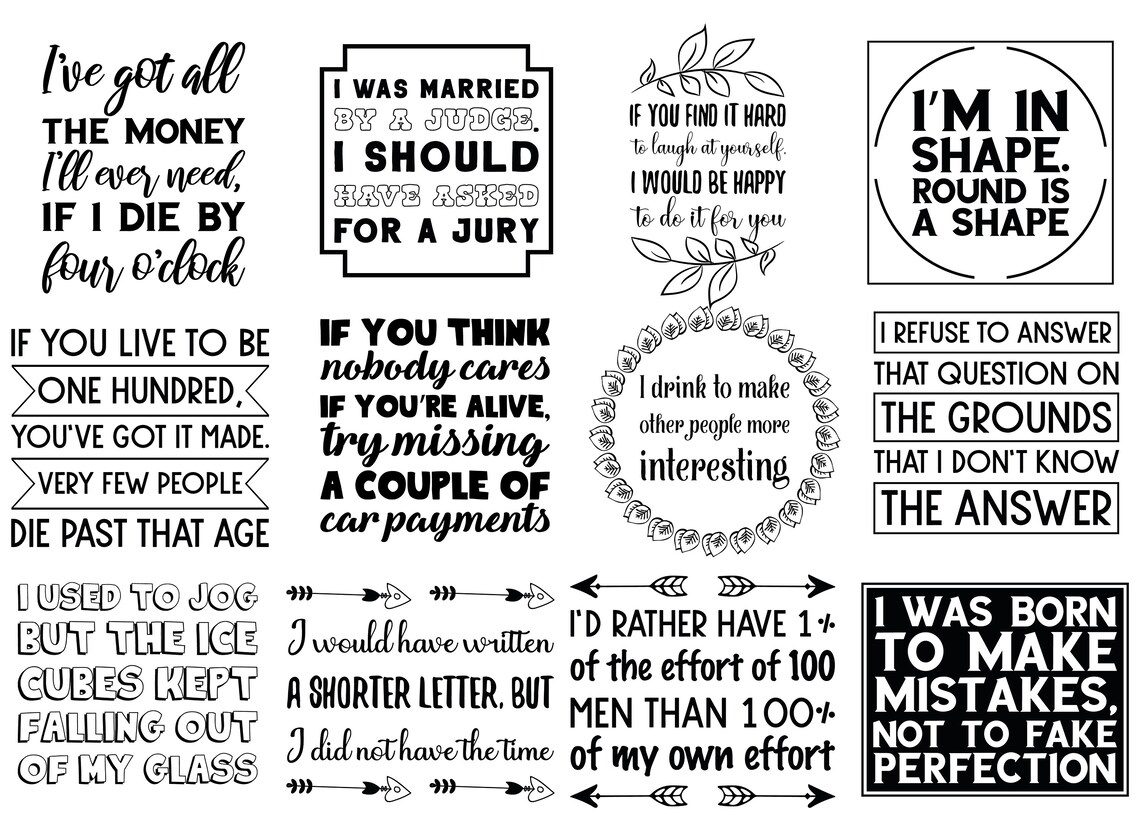 I've got all
THE MONEY
I'll ever need,
IF I DIE BY
four o'clock
I WAS MARRIED
BY A JUDGE.
I SHOULD
HAVE ASKED
FOR A JURY
IF YOU FIND IT HARD
to laugh at yourself.
I WOULD BE HAPPY
to do it for you
I'M IN
SHAPE.
ROUND IS
A SHAPE
IF YOU LIVE TO BE
ONE HUNDRED,
YOU'VE GOT IT MADE.
VERY FEW PEOPLE
DIE PAST THAT AGE
IF YOU THINK
nobody cares
IF YOU'RE ALIVE,
try missing
A COUPLE OF
car payments
I drink to make
other people more
interesting
I REFUSE TO ANSWER
THAT QUESTION ON
THE GROUNDS
THAT I DON'T KNOW
THE ANSWER
I USED TO JOG
BUT THE ICE
CUBES KEPT
FALLING OUT
OF MY GLASS
I would have written
A SHORTER LETTER, BUT
I did not have the time
I'D RATHER HAVE 1%
of the effort of 100
MEN THAN 100%
of my own effort
I WAS BORN
TO MAKE
MISTAKES,
NOT TO FAKE
PERFECTION